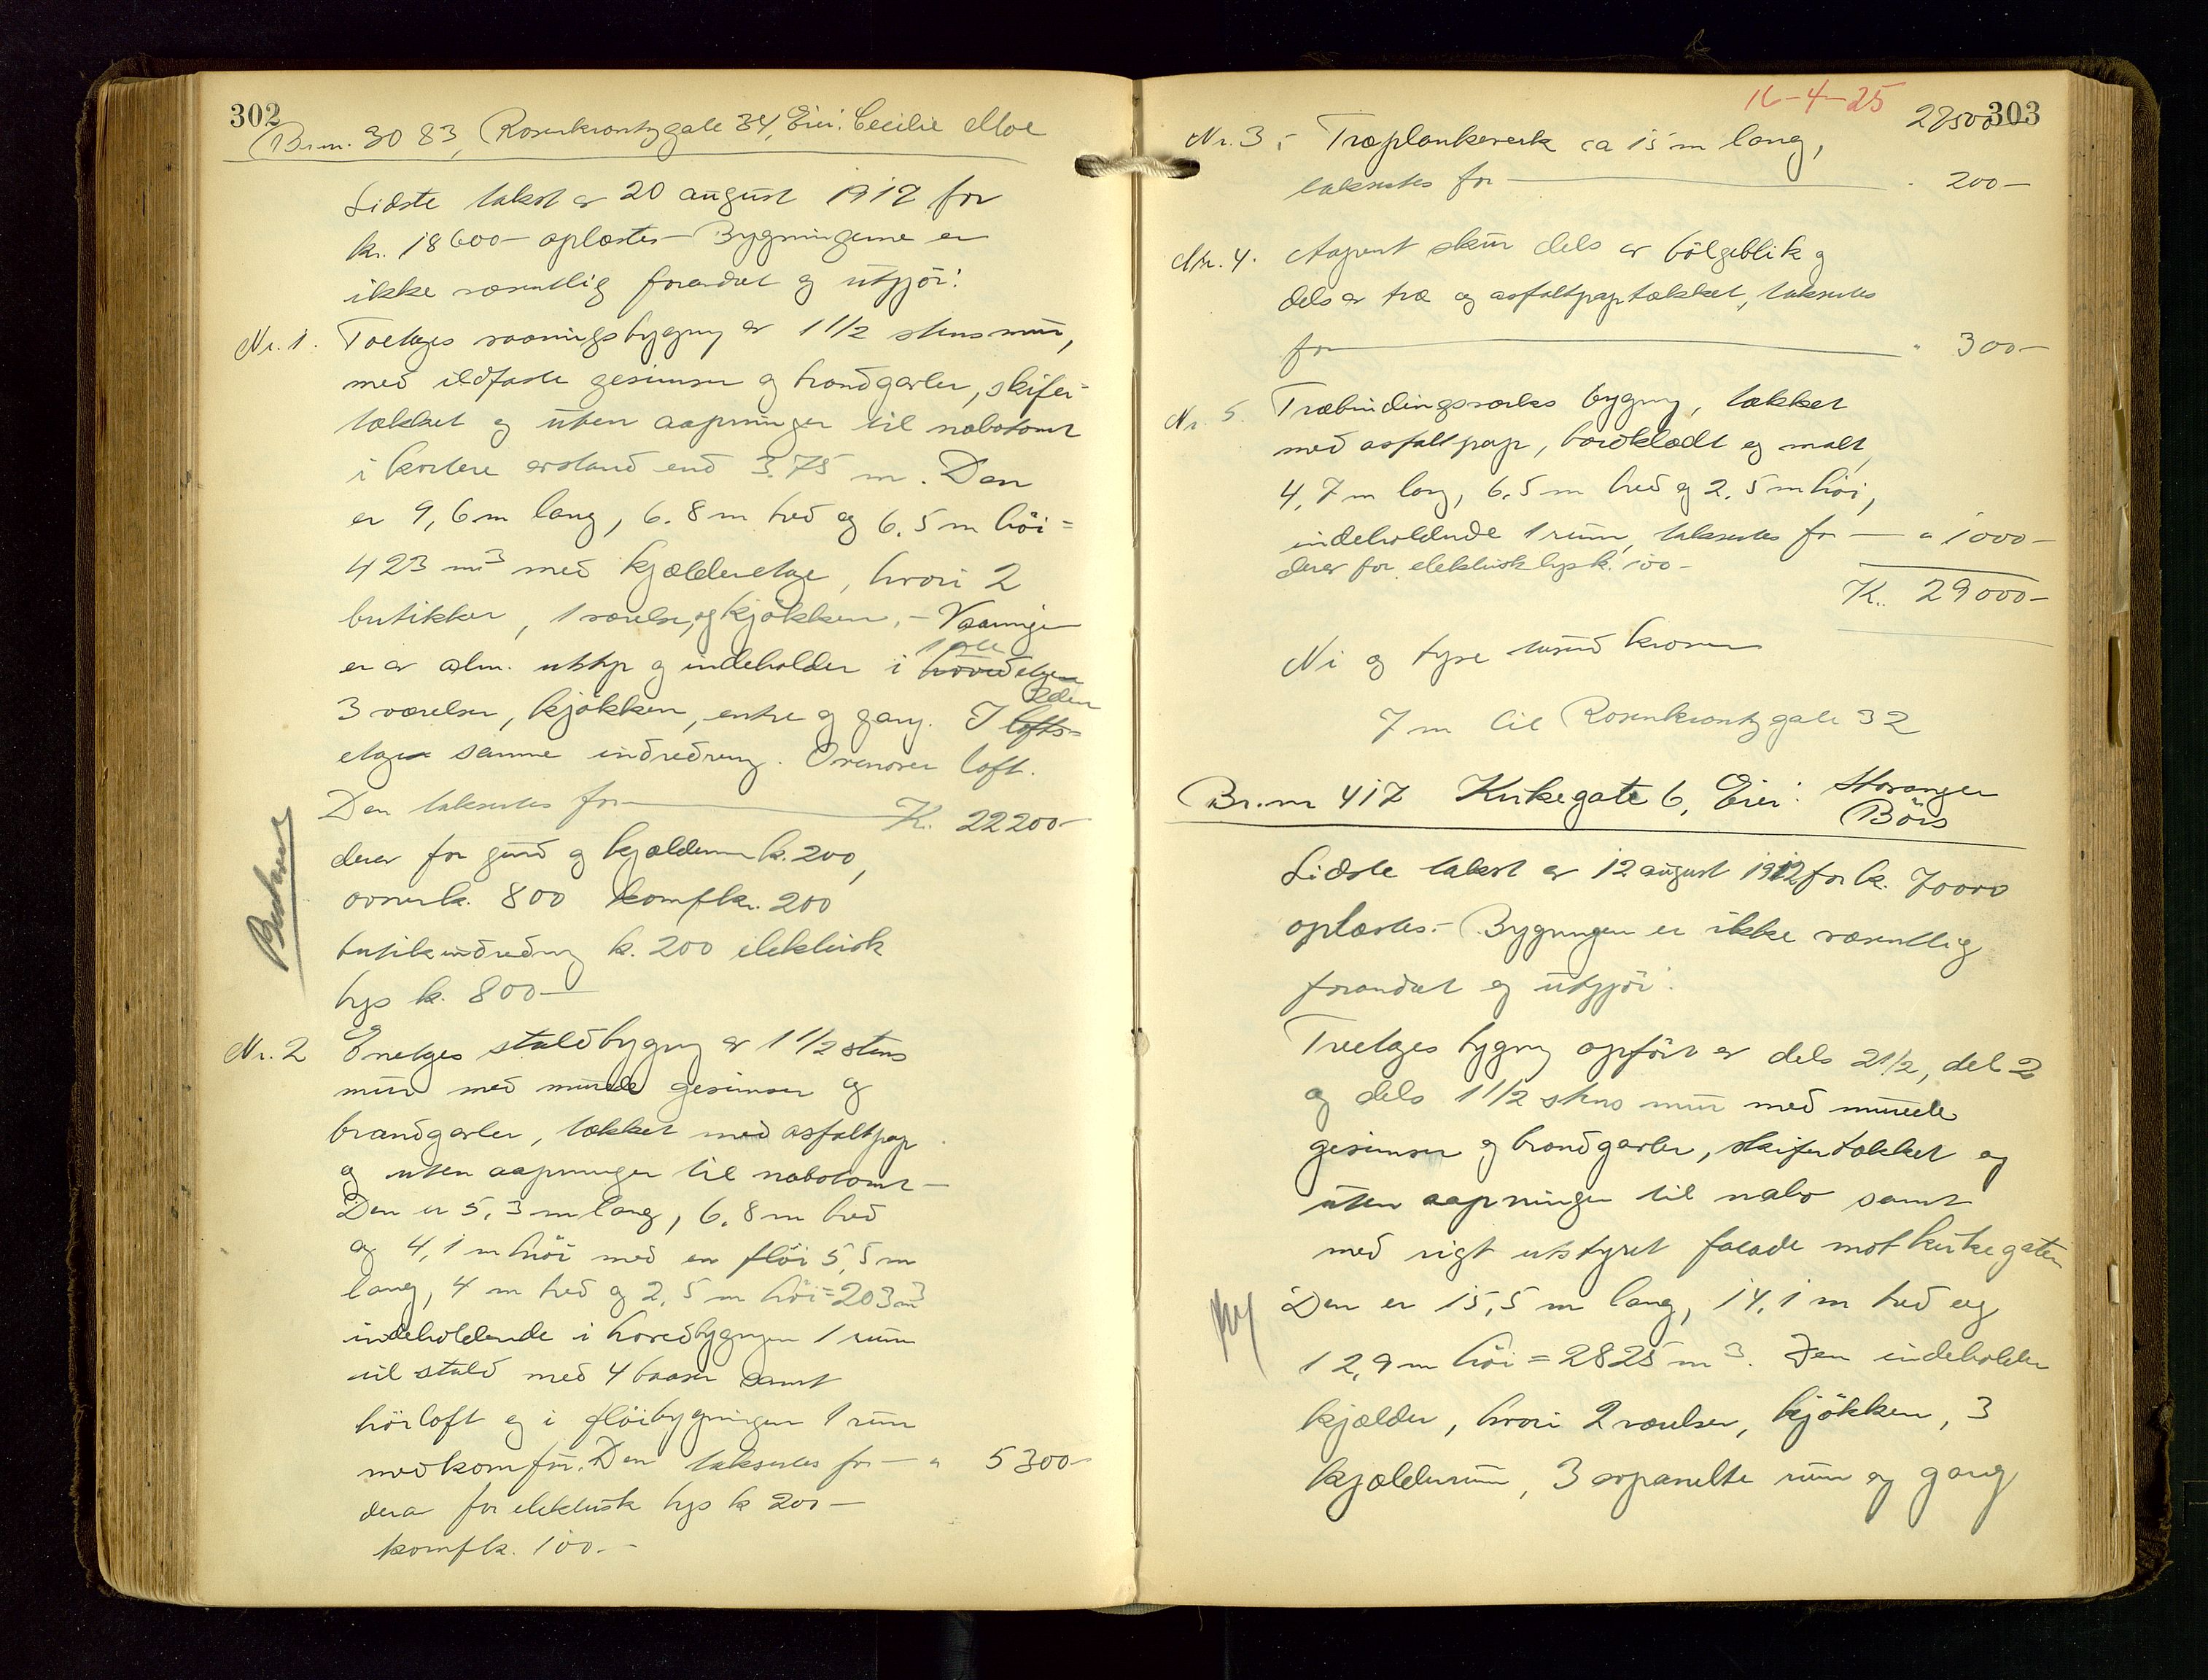 302
Br.nr. 3083, Rosenkrantzgate 34, Eier: Cecilie Moe
Sidste takst av 20 august 1912 for
kr. 18600- oplæstes - Bygningerne er
ikke væsentlig forandret og utgjør:
Nr. 1. Toetages vaaningsbygning av 1 1/2 stens mur,
med ildfaste gesimser og brandgavler, skifer-
tækket og uten aapninger til nabotomt
i kortere avstand end 3.75 m. Den
er 9,6 m lang, 6.8 m bred og 6.5 m høi =
423 m³ med kjælderetage, hvori 2
butikker, 1 værelse, og kjøkken. - Vaaningen
er av alm. utstyr og indeholder i 1ste hovedetagen
3 værelser, kjøkken, entre og gang. I 2den lofts-
etagen samme indredning. Ovenover loft.
Den taksertes for K. 22200-
derav for grund og kjælderen k. 200,
ovner k. 800 komf kr. 200
butikindredning k. 200 elektrisk
lys k. 800-
Nr. 2 Enetages staldbygning av 1 1/2 stens
mur med murede gesimser og
brandgavler, tækket med asfaltpap
og uten aapninger til nabotomt -
Den er 5,3 m lang, 6,8 m bred
og 4,1 m høi med en fløi 5,5 m
lang, 4 m bred og 2,5 m høi = 203 m³
indeholdende i hovedbygningen 1 rum
til stald med 4 baaser samt
høiloft og i fløibygningen 1 rum
med komfur. Den taksertes for - " 5300-
derav for elektrisk lys k 200-
komf k. 100.-
16-4-25
303
27500
Nr. 3, - Træplankeverk ca 15 m lang,
taksertes for - 200-
Nr. 4. Aapent skur dels av bölgeblik og
dels av træ og asfaltpaptækket, taksertes
for " 300-
Nr. 5. Træbindingsverks bygning, tækket
med asfaltpap, bordklædt og malt,
4,7 m lang, 6,5 m bred og 2,5 m høi,
indeholdende 1 rum, taksertes for - " 1000-
derav for elektrisk lys k. 100-
K. 29000-
Ni og tyve tusind kroner
7 m til Rosenkrantzgate 32
Br.nr 417 Kirkegate 6, Eier: Stavanger
Börs
Sidste takst av 12 august 1912 for k. 70000
oplæstes. - Bygningen er ikke væsentlig
forandret og utgjør:
Treetages bygning opført av dels 2 1/2, del 2
og dels 1 1/2 stens mur med murede
gesimser og brandgavler, skifertækket og
uten aapninger til nabo samt
med rigt utstyret facade mot kirkegaten
Den er 15,5 m lang, 14,1 m bred og
12,9 m høi = 2825 m³. Den indeholder
kjælder, hvori 2 værelser, kjøkken, 3
kjælderrum, 3 avpanelte rum og gang